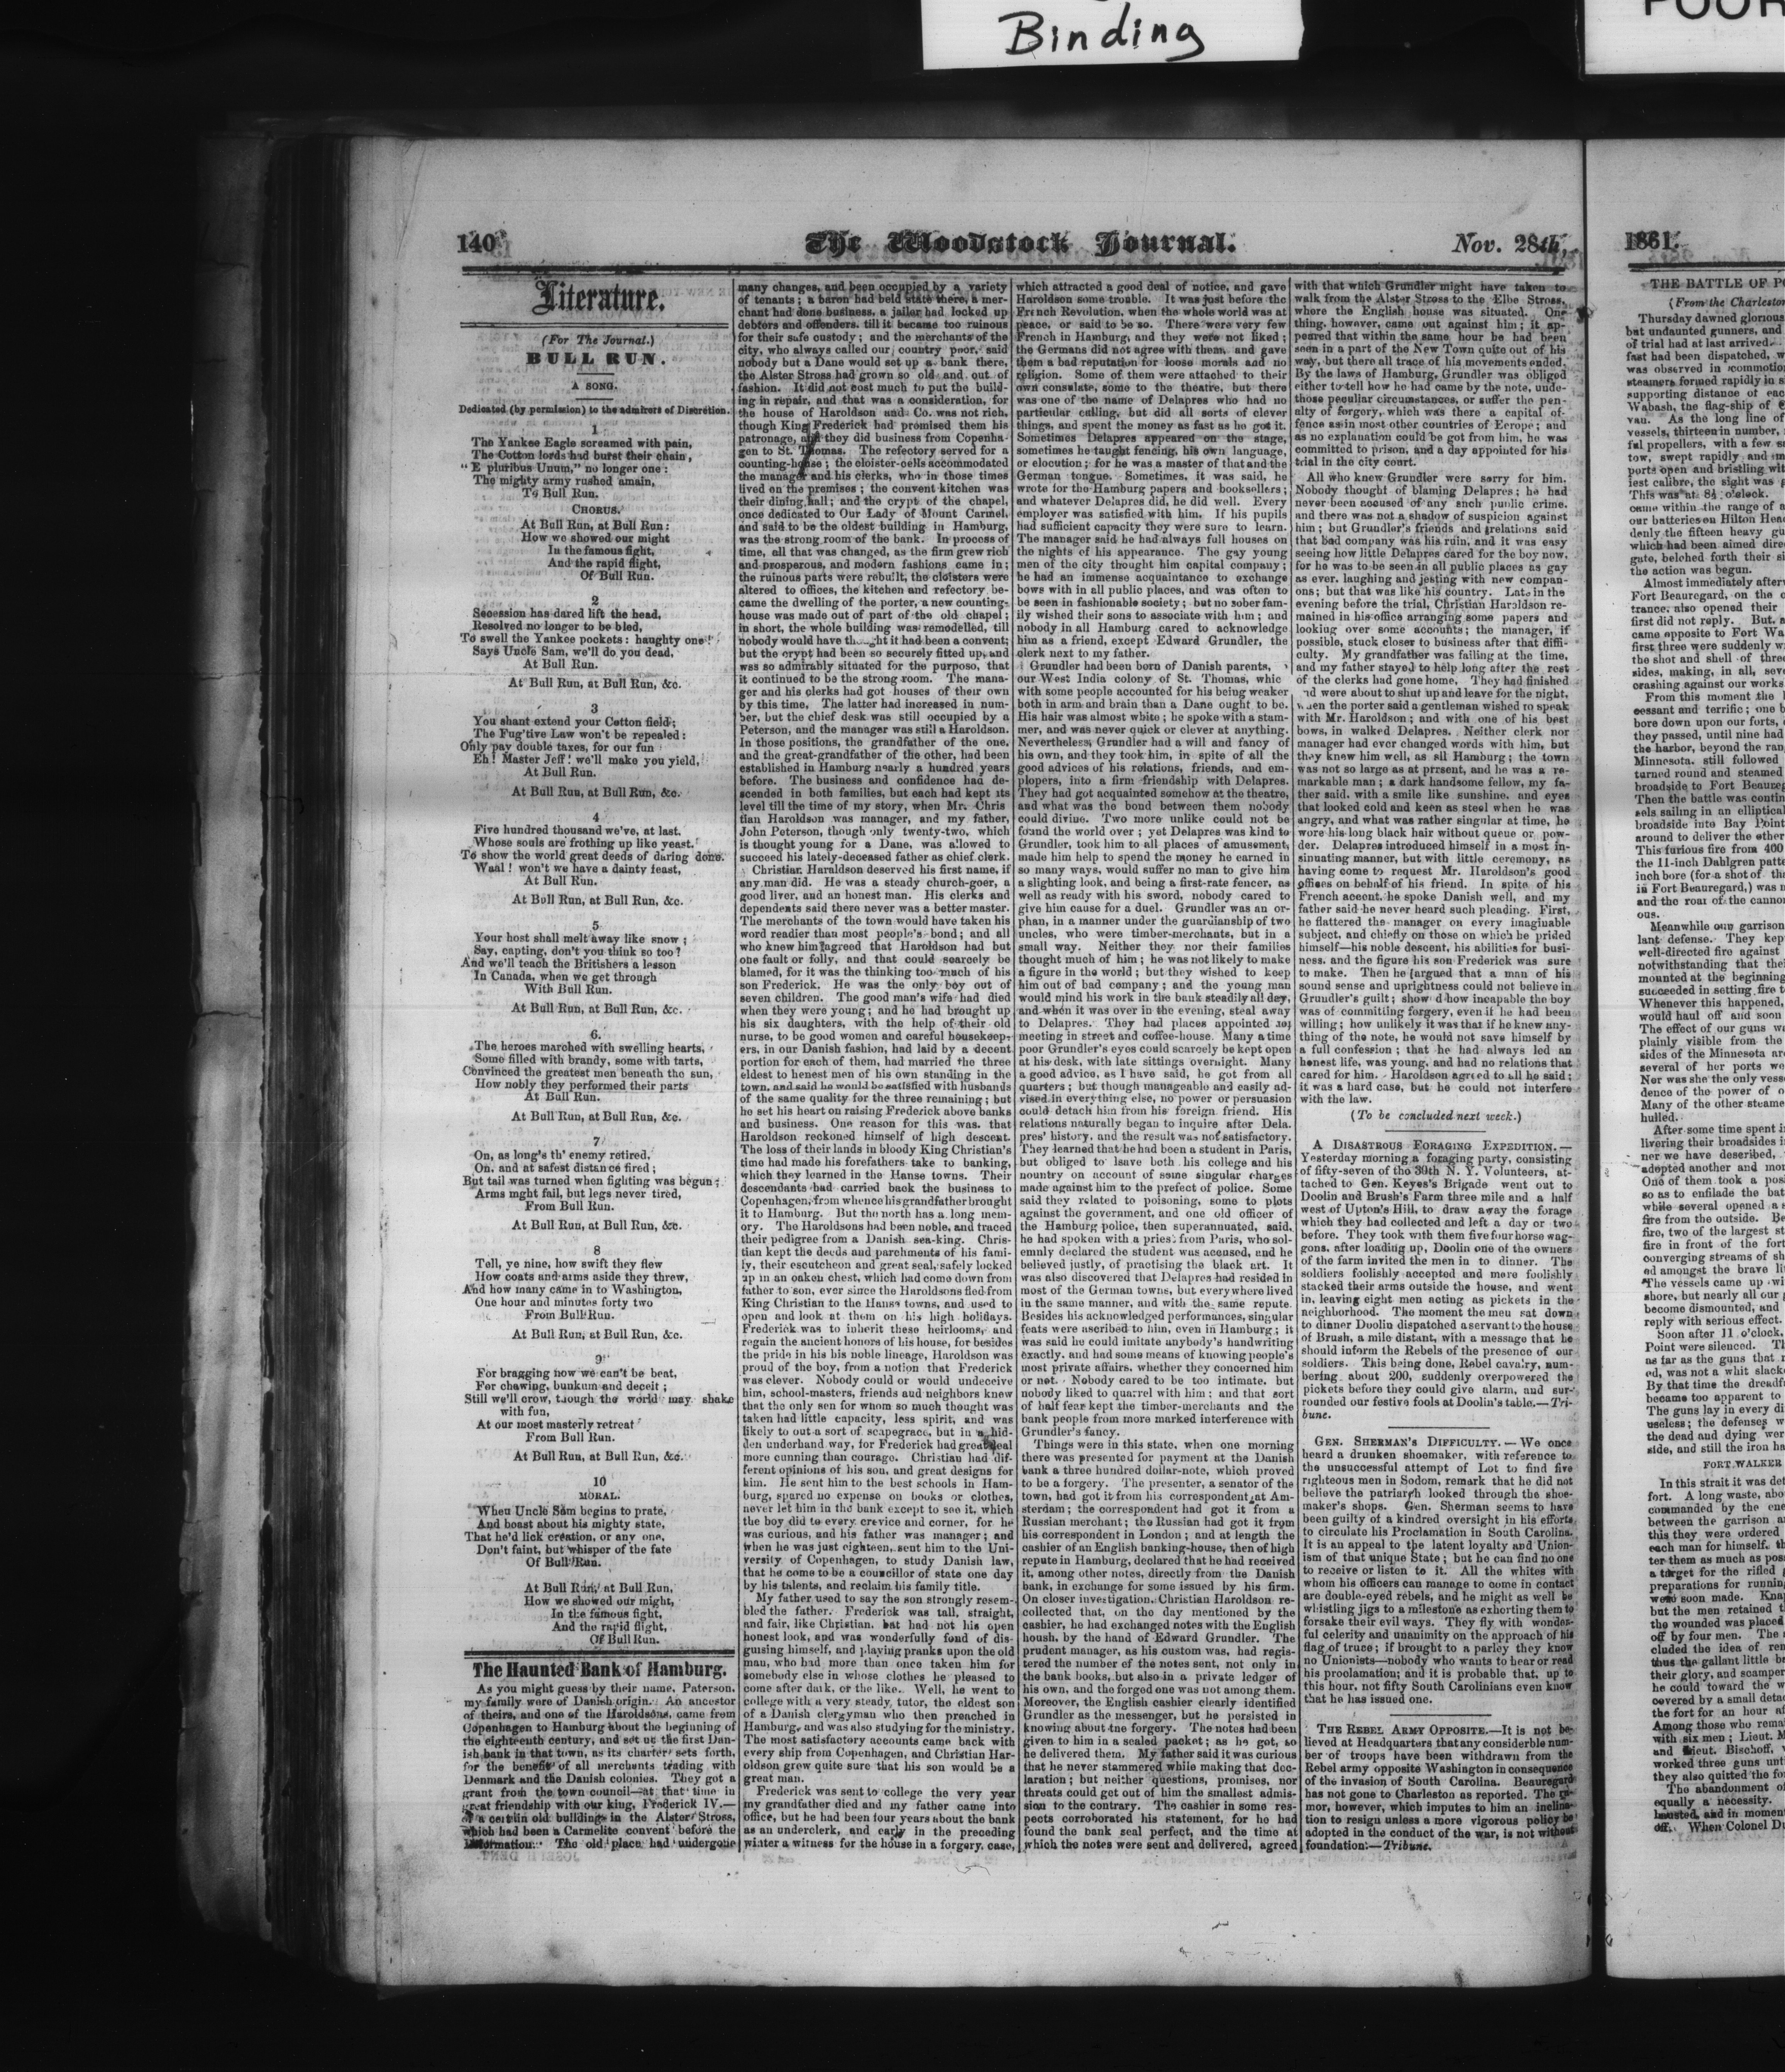 Binding
POOR
140
The Woodstock Journal.
Nov. 28th,
Literature.
(For The Journal.)
BULL RUN.
A SONG.
Dedicated (by permission) to the admirers of Discretion.
1
The Yankee Eagle screamed with pain,
The Cotton lords had burst their chain,
"E pluribus Unum," no longer one:
The mighty army rushed amain,
To Bull Run.
CHORUS.
At Bull Run, at Bull Run:
How we showed our might
In the famous fight,
And the rapid flight,
Of Bull Run.
2
Secession has dared lift the head,
Resolved no longer to be bled,
To swell the Yankee pockets: haughty one!
Says Uncle Sam, we'll do you dead,
At Bull Run.
At Bull Run, at Bull Run, &c.
3
You shant extend your Cotton field;
The Fug'tive Law won't be repealed:
Only pay double taxes, for our fun
Eh! Master Jeff! we'll make you yield,
At Bull Run.
At Bull Run, at Bull Run, &c.
4
Five hundred thousand we've, at last,
Whose souls are frothing up like yeast.
To show the world great deeds of daring done.
Waal! won't we have a dainty feast,
At Bull Run.
At Bull Run, at Bull Run, &c.
5
Your host shall melt away like snow;
Say, capting, don't you think so too?
And we'll teach the Britishers a lesson
In Canada, when we get through
With Bull Run.
At Bull Run, at Bull Run, &c.
6.
The heroes marched with swelling hearts,
Some filled with brandy, some with tarts,
Convinced the greatest men beneath the sun,
How nobly they performed their parts
At Bull Run.
At Bull Run, at Bull Run, &c.
7
On, as long's th' enemy retired,
On, and at safest distance fired;
But tail was turned when fighting was begun;
Arms mght fail, but legs never tired,
From Bull Run.
At Bull Run, at Bull Run, &c.
8
Tell, ye nine, how swift they flew
How coats and arms aside they threw,
And how many came in to Washington,
One hour and minutes forty two
From Bull Run.
At Bull Run, at Bull Run, &c.
9
For bragging now we can't be beat,
For chawing, bunkum and deceit;
Still we'll crow, though the world may shake
with fun,
At our most masterly retreat
From Bull Run.
At Bull Run, at Bull Run, &c.
10
MORAL.
When Uncle Sam begins to prate,
And boast about his mighty state,
That he'd lick creation, or any one,
Don't faint, but whisper of the fate
Of Bull Run.
At Bull Run, at Bull Run,
How we showed our might,
In the famous fight,
And the rapid flight,
Of Bull Run.
The Haunted Bank of Hamburg.
As you might guess by their name, Paterson,
my family were of Danish origin. An ancestor
of theirs, and one of the Haroldsons, came from
Copenhagen to Hamburg about the beginning of
the eighteenth century, and set up the first Dan-
ish bank in that town, as its charter sets forth,
for the benefit of all merchants trading with
Denmark and the Danish colonies. They got a
grant from the town council—at that time in
great friendship with our king, Frederick IV.—
of a certain old buildings in the Alster Stross,
which had been a Carmelite convent before the
The old place had undergone
many changes, and been occupied by a variety
of tenants; a baron had held state there, a mer-
chant had done business, a jailer had locked up
debtors and offenders, till it became too ruinous
for their safe custody; and the merchants of the
city, who always called our country poor, said
nobody but a Dane would set up a bank there,
the Alster Stross had grown so old and out of
fashion. It did not cost much to put the build-
ing in repair, and that was a consideration, for
the house of Haroldson and Co. was not rich,
though King Frederick had promised them his
patronage, and they did business from Copenha-
gen to St. Thomas. The refectory served for a
counting-house; the cloister-cells accommodated
the manager and his clerks, who in those times
lived on the premises; the convent kitchen was
their dining hall; and the crypt of the chapel,
once dedicated to Our Lady of Mount Carmel,
and said to be the oldest building in Hamburg,
was the strong room of the bank. In process of
time, all that was changed, as the firm grew rich
and prosperous, and modern fashions came in;
the ruinous parts were rebuilt, the cloisters were
altered to offices, the kitchen and refectory be-
came the dwelling of the porter, a new counting-
house was made out of part of the old chapel;
in short, the whole building was remodelled, till
nobody would have thought it had been a convent;
but the crypt had been so securely fitted up, and
was so admirably situated for the purposo, that
it continued to be the strong room. The mana-
ger and his clerks had got houses of their own
by this time. The latter had increased in num-
ber, but the chief desk was still occupied by a
Peterson, and the manager was still a Haroldson.
In those positions, the grandfather of the one,
and the great-grandfather of the other, had been
established in Hamburg nearly a hundred years
before. The business and confidence had de-
scended in both families, but each had kept its
level till the time of my story, when Mr. Chris
tian Haroldson was manager, and my father,
John Peterson, though only twenty-two, which
is thought young for a Dane, was allowed to
succeed his lately-deceased father as chief clerk.
Christian Haraldson deserved his first name, if
any man did. He was a steady church-goer, a
good liver, and an honest man. His clerks and
dependents said there never was a better master.
The merchants of the town would have taken his
word readier than most people's bond; and all
who knew him agreed that Haroldson had but
one fault or folly, and that could scarcely be
blamed, for it was the thinking too much of his
son Frederick. He was the only boy out of
seven children. The good man's wife had died
when they were young; and he had brought up
his six daughters, with the help of their old
nurse, to be good women and careful housekeep-
ers, in our Danish fashion, had laid by a decent
portion for each of them, had married the three
eldest to honest men of his own standing in the
town, and said he would be satisfied with husbands
of the same quality for the three remaining; but
he set his heart on raising Frederick above banks
and business. One reason for this was, that
Haroldson reckoned himself of high descent.
The loss of their lands in bloody King Christian's
time had made his forefathers take to banking,
which they learned in the Hanse towns. Their
descendants had carried back the business to
Copenhagen, from whence his grandfather brought
it to Hamburg. But the north has a long mem-
ory. The Haroldsons had been noble, and traced
their pedigree from a Danish sea-king. Chris-
tian kept the deeds and parchments of his fami-
ly, their escutcheon and great seal, safely locked
up in an oaken chest, which had come down from
father to son, ever since the Haroldsons fled from
King Christian to the Hanse towns, and used to
open and look at them on his high holidays.
Frederick was to inherit these heirlooms, and
regain the ancient honors of his house, for besides
the pride in his his noble lineage, Haroldson was
proud of the boy, from a notion that Frederick
was clever. Nobody could or would undeceive
him, school-masters, friends and neighbors knew
that the only sen for whom so much thought was
taken had little capacity, less spirit, and was
likely to out a sort of scapegrace, but in a hid-
den underhand way, for Frederick had great deal
more cunning than courage. Christian had dif-
ferent opinions of his son, and great designs for
him. He sent him to the best schools in Ham-
burg, spared no expense on books or clothes,
never let him in the bank except to see it, which
the boy did to every crevice and corner, for he
was curious, and his father was manager; and
when he was just eighteen, sent him to the Uni-
versity of Copenhagen, to study Danish law,
that he come to be a councillor of state one day
by his talents, and reclaim his family title.
My father used to say the son strongly resem-
bled the father. Frederick was tall, straight,
and fair, like Christian, bat had not his open
honest look, and was wonderfully fond of dis-
guising himself, and playing pranks upon the old
man, who had more than once taken him for
somebody else in whose clothes he pleased to
come after dark, or the like. Well, he went to
college with a very steady tutor, the eldest son
of a Danish clergyman who then preached in
Hamburg, and was also studying for the ministry.
The most satisfactory accounts came back with
every ship from Copenhagen, and Christian Har-
oldson grew quite sure that his son would be a
great man.
Frederick was sent to college the very year
my grandfather died and my father came into
office, but he had been four years about the bank
as an underclerk, and early in the preceding
winter a witness for the house in a forgery case,
which attracted a good deal of notice, and gave
Haroldson some trouble. It was just before the
French Revolution, when the whole world was at
peace, or said to be so. There were very few
French in Hamburg, and they were not liked;
the Germans did not agree with them, and gave
them a bad reputation for loose morals and no
religion. Some of them were attached to their
own consulate, some to the theatre, but there
was one of the name of Delapres who had no
particular calling, but did all sorts of clever
things, and spent the money as fast as he got it.
Sometimes Delapres appeared on the stage,
sometimes he taught fencing, his own language,
or elocution; for he was a master of that and the
German tongue. Sometimes, it was said, he
wrote for the Hamburg papers and booksellers;
and whatever Delapres did, he did well. Every
employer was satisfied with him. If his pupils
had sufficient capacity they were sure to learn.
The manager said he had always full houses on
the nights of his appearance. The gay young
men of the city thought him capital company;
he had an immense acquaintance to exchange
bows with in all public places, and was often to
be seen in fashionable society; but no sober fam-
ily wished their sons to associate with him; and
nobody in all Hamburg cared to acknowledge
him as a friend, except Edward Grundler, the
clerk next to my father.
Grundler had been born of Danish parents,
our West India colony of St. Thomas, whic
with some people accounted for his being weaker
both in arm and brain than a Dane ought to be.
His hair was almost white; he spoke with a stam-
mer, and was never quick or clever at anything.
Nevertheless, Grundler had a will and fancy of
his own, and they took him, in spite of all the
good advices of his relations, friends, and em-
plopers, into a firm friendship with Delapres.
They had got acquainted somehow at the theatre,
and what was the bond between them nobody
could divine. Two more unlike could not be
found the world over; yet Delapres was kind to
Grundler, took him to all places of amusement,
made him help to spend the money he earned in
so many ways, would suffer no man to give him
a slighting look, and being a first-rate fencer, as
well as ready with his sword, nobody cared to
give him cause for a duel. Grundler was an or-
phan, in a manner under the guardianship of two
uncles, who were timber-merchants, but in a
small way. Neither they nor their families
thought much of him; he was not likely to make
a figure in the world; but they wished to keep
him out of bad company; and the young man
would mind his work in the bank steadily all day,
and when it was over in the evening, steal away
to Delapres. They had places appointed for
meeting in street and coffee-house. Many a time
poor Grundler's eyes could scarcely be kept open
at his desk, with late sittings overnight. Many
a good advice, as I have said, he got from all
quarters; but though manageable and easily ad-
vised in everything else, no power or persuasion
could detach him from his foreign friend. His
relations naturally began to inquire after Dela.
pres' history, and the result was not satisfactory.
They learned that he had been a student in Paris,
but obliged to leave both his college and his
nountry on account of some singular charges
made against him to the prefect of police. Some
said they related to poisoning, some to plots
against the government, and one old officer of
the Hamburg police, then superannuated, said,
he had spoken with a priest from Paris, who sol-
emnly declared the student was accused, and he
believed justly, of practising the black art. It
was also discovered that Delapres had resided in
most of the German towns, but everywhere lived
in the same manner, and with the same repute.
Besides his acknowledged performances, singular
feats were ascribed to him, even in Hamburg; it
was said he could imitate anybody's handwriting
exactly, and had some means of knowing people's
most private affairs, whether they concerned him
or not. Nobody cared to be too intimate, but
nobody liked to quarrel with him; and that sort
of half fear kept the timber-merchants and the
bank people from more marked interference with
Grundler's fancy.
Things were in this state, when one morning
there was presented for payment at the Danish
bank a three hundred dollar-note, which proved
to be a forgery. The presenter, a senator of the
town, had got it from his correspondent at Am-
sterdam; the correspondent had got it from a
Russian merchant; the Russian had got it from
his correspondent in London; and at length the
cashier of an English banking-house, then of high
repute in Hamburg, declared that he had received
it, among other notes, directly from the Danish
bank, in exchange for some issued by his firm.
On closer investigation, Christian Haroldson re-
collected that, on the day mentioned by the
cashier, he had exchanged notes with the English
housh, by the hand of Edward Grundler. The
prudent manager, as his custom was, had regis-
tered the number of the notes sent, not only in
the bank books, but also in a private ledger of
his own, and the forged one was not among them.
Moreover, the English cashier clearly identified
Grundler as the messenger, but he persisted in
knowing about the forgery. The notes had been
given to him in a sealed packet; as he got, so
he delivered them. My father said it was curious
that he never stammered while making that dec-
laration; but neither questions, promises, nor
threats could get out of him the smallest admis-
sion to the contrary. The cashier in some res-
pects corroborated his statement, for he had
found the bank seal perfect, and the time at
which the notes were sent and delivered, agreed
with that which Grundler might have taken to
walk from the Alster Stross to the Elbe Stross,
where the English house was situated. One
thing, however, came out against him; it ap-
peared that within the same hour he had been
seen in a part of the New Town quite out of his
way, but there all trace of his movements ended.
By the laws of Hamburg, Grundler was obliged
either to tell how he had came by the note, unde-
those peculiar circumstances, or suffer the pen-
alty of forgery, which was there a capital of-
fence as in most other countries of Eerope; and
as no explanation could be got from him, he was
committed to prison, and a day appointed for his
trial in the city court.
All who knew Grundler were sorry for him.
Nobody thought of blaming Delapres; he had
never been accused of any such public crime,
and there was not a shadow of suspicion against
him; but Grundler's friends and relations said
that bad company was his ruin, and it was easy
seeing how little Delapres cared for the boy now,
for he was to be seen in all public places as gay
as ever, laughing and jesting with new compan-
ons; but that was like his country. Late in the
evening before the trial, Christian Haroldson re-
mained in his office arranging some papers and
looking over some accounts; the manager, if
possible, stuck closer to business after that diffi-
culty. My grandfather was failing at the time,
and my father stayed to help long after the rest
of the clerks had gone home. They had finished
nd were about to shut up and leave for the night,
when the porter said a gentleman wished to speak
with Mr. Haroldson; and with one of his best
bows, in walked Delapres. Neither clerk nor
manager had ever changed words with him, but
they knew him well, as all Hamburg; the town
was not so large as at prrsent, and he was a re-
markable man; a dark handsome fellow, my fa-
ther said, with a smile like sunshine, and eyes
that looked cold and keen as steel when he was
angry, and what was rather singular at time, he
wore his long black hair without queue or pow-
der. Delapres introduced himself in a most in-
sinuating manner, but with little ceremony, as
having come to request Mr. Haroldson's good
offises on behalf of his friend. In spite of his
French accent, he spoke Danish well, and my
father said he never heard such pleading. First,
he flattered the manager on every imaginable
subject, and chiefly on those on which he prided
himself—his noble descent, his abilities for busi-
ness, and the figure his son Frederick was sure
to make. Then he argued that a man of his
sound sense and uprightness could not believe in
Grundler's guilt; show d how incapable the boy
was of committing forgery, even if he had been
willing; how unlikely it was that if he knew any-
thing of the note, he would not save himself by
a full confession; that he had always led an
honest life, was young, and had no relations that
cared for him. Haroldson agreed to all he said;
it was a hard case, but he could not interfere
with the law.
(To be concluded next week.)
A DISASTROUS FORAGING EXPEDITION.—
Yesterday morning a foraging party, consisting
of fifty-seven of the 30th N. Y. Volunteers, at-
tached to Gen. Keyes's Brigade went out to
Doolin and Brush's Farm three mile and a half
west of Upton's Hill, to draw away the forage
which they had collected and left a day or two
before. They took with them five four horse wag-
gons, after loading up, Doolin one of the owners
of the farm invited the men in to dinner. The
soldiers foolishly accepted and more foolishly
stacked their arms outside the house, and went
in, leaving eight men acting as pickets in the
neighborhood. The moment the men sat down
to dinner Doolin dispatched a servant to the house
of Brush, a mile distant, with a message that he
should inform the Rebels of the presence of our
soldiers. This being done, Rebel cavalry, num-
bering about 200, suddenly overpowered the
pickets before they could give alarm, and sur-
rounded our festive fools at Doolin's table.—Tri-
bune.
GEN. SHERMAN'S DIFFICULTY.—We once
heard a drunken shoemaker, with reference to
the unsuccessful attempt of Lot to find five
righteous men in Sodom, remark that he did not
believe the patriarch looked through the shoe-
maker's shops. Gen. Sherman seems to have
been guilty of a kindred oversight in his efforts
to circulate his Proclamation in South Carolina.
It is an appeal to the latent loyalty and Union-
ism of that unique State; but he can find no one
to receive or listen to it. All the whites with
whom his officers can manage to come in contact
are double-eyed rebels, and he might as well be
whistling jigs to a milestone as exhorting them to
forsake their evil ways. They fly with wonder-
ful celerity and unanimity on the approach of his
flag of truce; if brought to a parley they know
no Unionists—nobody who wants to hear or read
his proclamation; and it is probable that, up to
this hour, not fifty South Carolinians even know
that he has issued one.
THE REBEL ARMY OPPOSITE.—It is not be-
lieved at Headquarters that any considerble num-
ber of troops have been withdrawn from the
Rebel army opposite Washington in consequence
of the invasion of South Carolina. Beauregard
has not gone to Charleston as reported. The ru-
mor, however, which imputes to him an inclina-
tion to resign unless a more vigorous policy be
adopted in the conduct of the war, is not without
foundation.—Tribune.
1861.
THE BATTLE OF
(From the Charleston
Thursday dawned glorious
but undaunted gunners, and
of trial had at last arrived.
fast had been dispatched,
was observed in commotion
steamers formed rapidly in
supporting distance of
Wabash, the flag-ship of
van. As the long line of
vessels, thirteen in number,
ful propellers, with a few
tow, swept rapidly and
ports open and bristling
iest calibre, the sight was
This was at 8½ o'clock.
came within the range of a
our batteries on Hilton
denly the fifteen heavy
which had been aimed
gate, belched forth their
the action was begun.
Almost immediately
Fort Beauregard, on the
trance, also opened their
first did not reply. But,
came opposite to Fort
first three were suddenly
the shot and shell of three
sides, making, in all,
crashing against our works
From this moment the
cessant and terrific; one
bore down upon our forts,
they passed, until nine had
the harbor, beyond the
Minnesota, still followed
turned round and steamed
broadside to Fort
Then the battle was
sels sailing in an elliptical
broadside into Bay Point
around to deliver the other
This furious fire from 400
the 11-inch Dahlgren
inch bore (for a shot of
in Fort Beauregard,) was
and the roar of the cannon
ous.
Meanwhile our garrison
lant defense. They kept
well-directed fire against
notwithstanding that
mounted at the beginning
succeeded in setting fire
Whenever this happened,
would haul off and soon
The effect of our guns
plainly visible from the
sides of the Minnesota
several of her ports
Nor was she the only
dence of the power of
Many of the other
hulled.
After some time spent
livering their broadsides
ner we have described,
adopted another and
One of them took a
so as to enfilade the
while several opened a
fire from the outside.
fire, two of the largest
fire in front of the fort
converging streams of
ed amongst the brave
The vessels came up
shore, but nearly all our
become dismounted, and
reply with serious effect.
Soon after 11 o'clock,
Point were silenced.
as far as the guns that
ed, was not a whit
By that time the
became too apparent to
The guns lay in every
useless; the defenses
the dead and dying
side, and still the iron
FORT WALKER
In this strait it was
fort. A long waste,
commanded by the
between the garrison
this they were ordered
each man for himself,
ter them as much as
a target for the rifled
preparations for
were soon made.
but the men retained
the wounded was placed
off by four men. The
cluded the idea of
thus the gallant little
their glory, and
he could toward the
covered by a small
the fort for an hour
Among those who
with six men; Lieut.
and Lieut. Bischoff,
worked three guns
they also quitted the
The abandonment of
equally a necessity.
hausted, and in
off. When Colonel